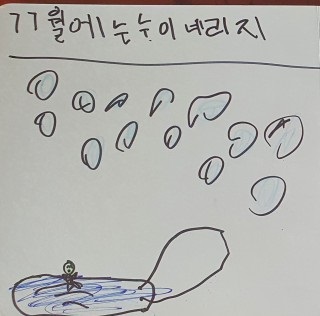 77월에 눈누이 내리지